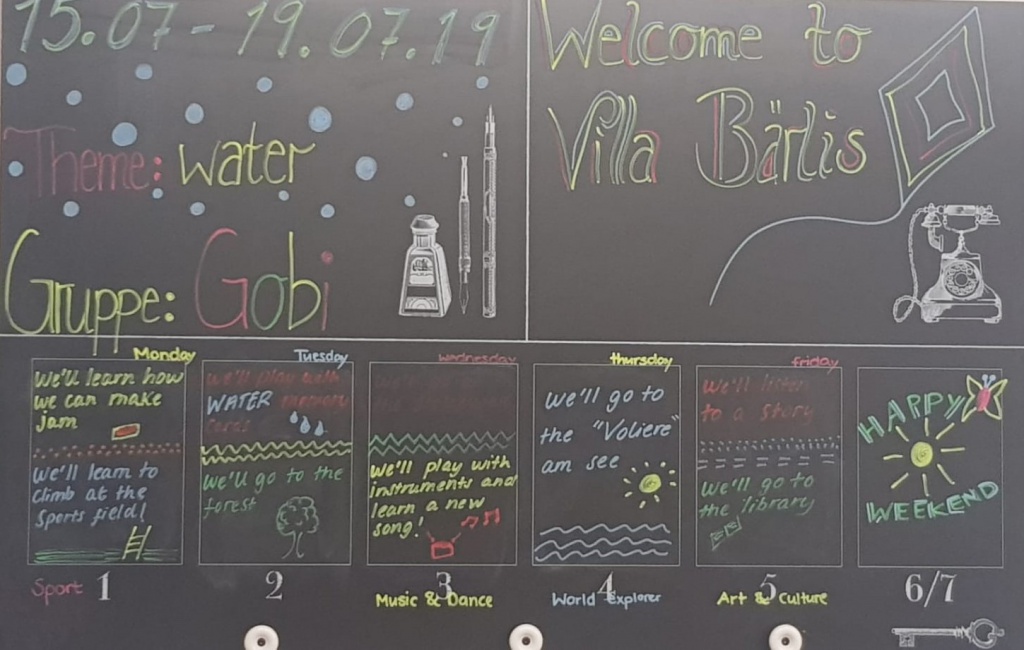 15.07 - 19.07.19
Theme: water
Gruppe: Gobi
Welcome to
Villa Bärlis
Monday
We'll learn how
we can make
jam
We'll learn to
climb at the
Sports field!
Sport 1
Tuesday
We'll play with
WATER memory
cards
We'll go to the
forest
2
Wednesday
We'll play with
instruments and
learn a new
song!
3
Music & Dance
thursday
We'll go to
the "Voliere"
am see
4
World explorer
friday
We'll listen
to a story
We'll go to
the library
5
Art & Culture
HAPPY
WEEKEND
6/7